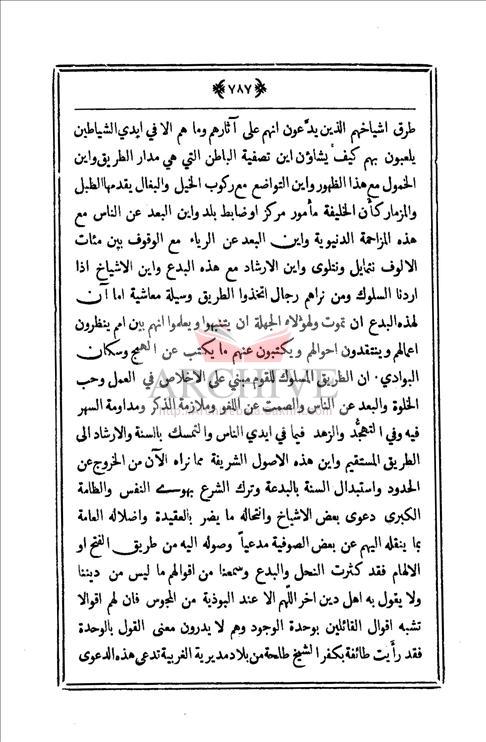 ﴿٧٨٧﴾
طرق اشياخهم الذين يدّعون انهم على آثارهم وما هم الا في ايدي الشياطين
يلعبون بهم كيف يشاؤن اين تصفية الباطن التي هي مدار الطريق واين
الخمول مع هذا الظهور واين التواضع مع ركوب الخيل والبغال يقدمها الطبل
والمزمار كأن الخليفة مأمور مركز اوضابط بلد واين البعد عن الناس مع
هذه المزاحمة الدنيوية واين البعد عن الرياء مع الوقوف بين مئات
الالوف نتمايل ونتلوى واين الارشاد مع هذه البدع واين الاشياخ اذا
اردنا السلوك ومن نراهم رجال اتخذوا الطريق وسيلة معاشية اما آن
لهذه البدع ان تموت ولهؤلاء الجهلة ان يتنبهوا ويعلموا انهم بين امم ينظرون
اعمالهم وينتقدون احوالهم ويكتبون عنهم ما يكتب عن الهمج وسكان
البوادي . ان الطريق المسلوك للقوم مبني على الاخلاص في العمل وحب
ARCHIVE
الخلوة والبعد عن الناس والصمت عن اللغو وملازمة الذكر ومداومة السهر
فيه وفي التهجُّد والزهد فيما في ايدي الناس والتمسك بالسنة والارشاد الى
الطريق المستقيم واين هذه الاصول الشريفة مما نراه الآن من الخروج عن
الحدود واستبدال السنة بالبدعة وترك الشرع بهوى النفس والطامة
الكبرى دعوى بعض الاشياخ وانتحاله ما يضر بالعقيدة واضلاله العامة
بما ينقله اليهم عن بعض الصوفية مدعياً وصوله اليه من طريق الفتح او
الالهام فقد كثرت النحل والبدع وسمعنا من اقوالهم ما ليس من ديننا
ولا يقول به اهل دين اخر اللّهم الا عند البوذية من المجوس فان لهم اقوالا
تشبه اقوال القائلين بوحدة الوجود وهم لا يدرون معنى القول بالوحدة
فقد رأيت طائفة بكفر الشيخ طلحة من بلاد مديرية الغربية تدعى هذه الدعوى